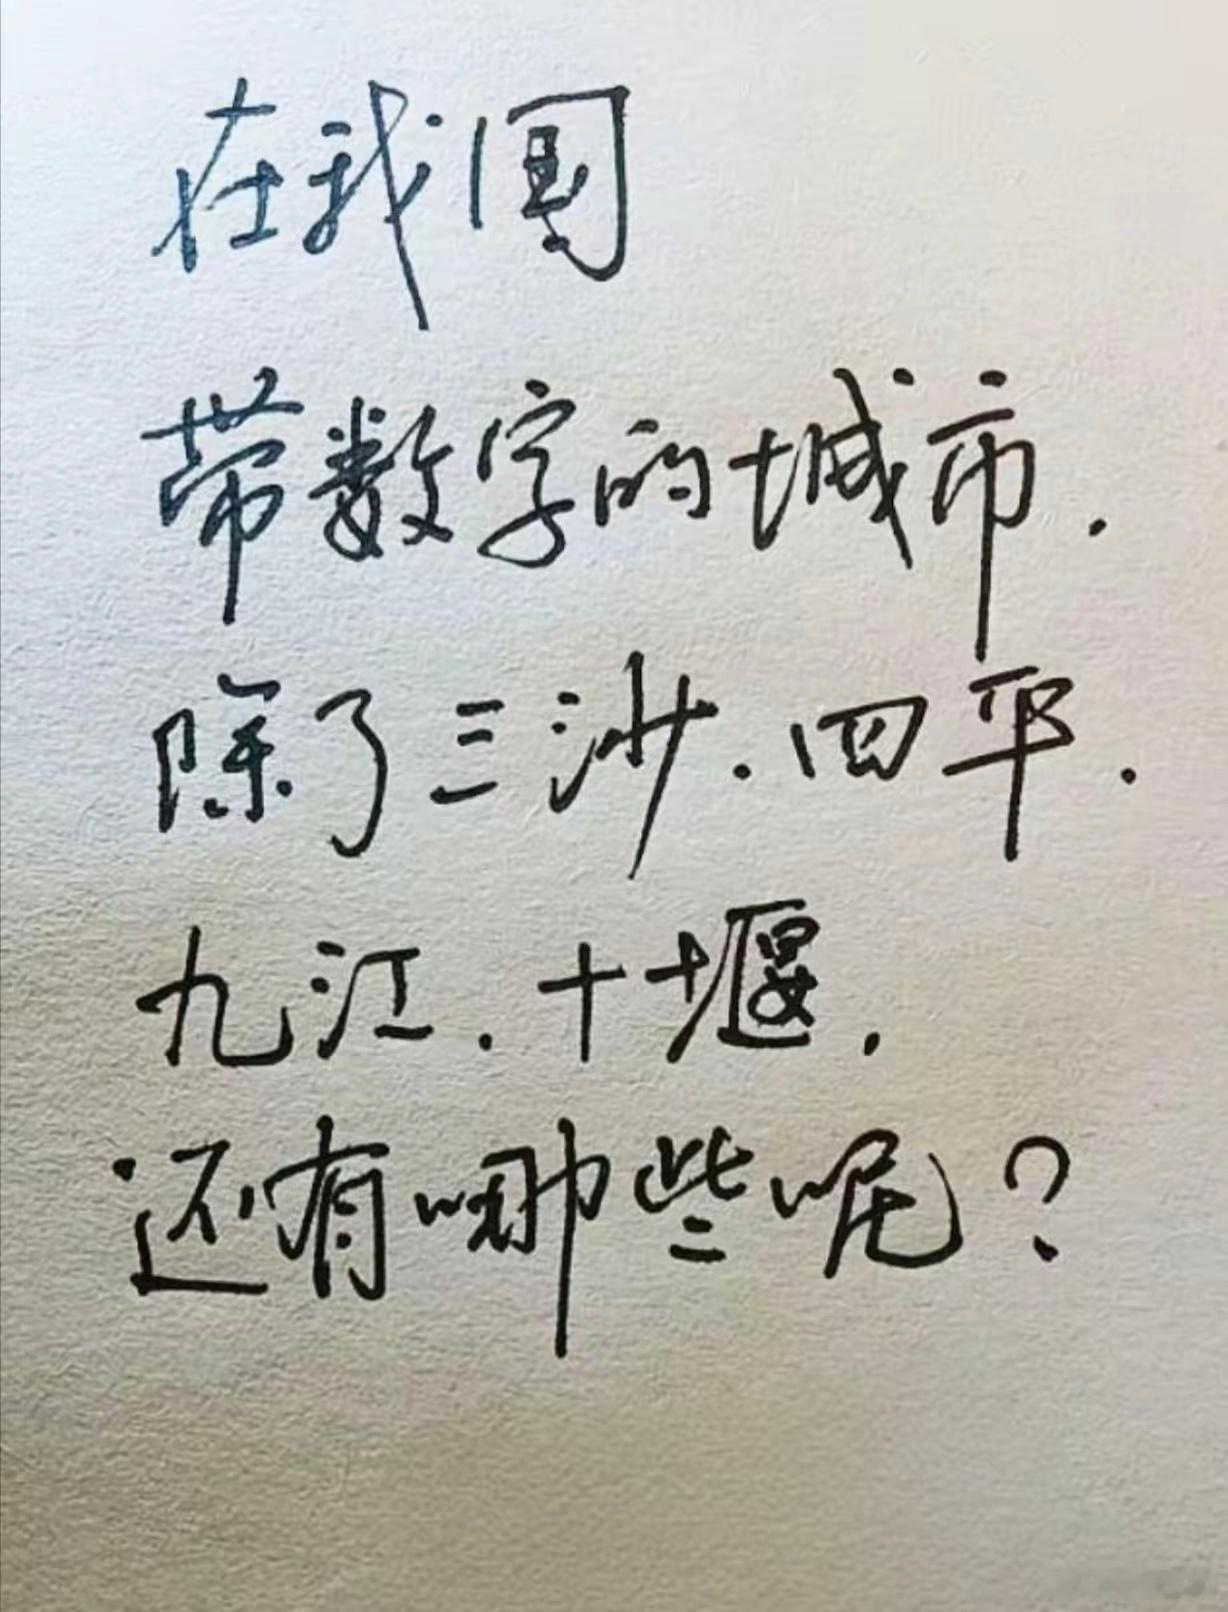 在我国
带数字的城市.
除了三沙.四平.
九江.十堰.
还有哪些呢?